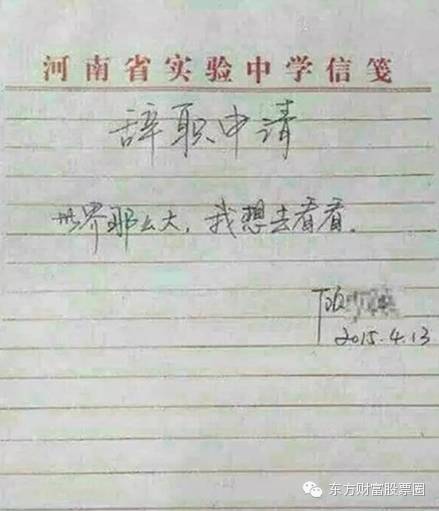 河南省实验中学信笺
辞职申请
世界那么大,我想去看看。
2015.4.13
东方财富股票圈